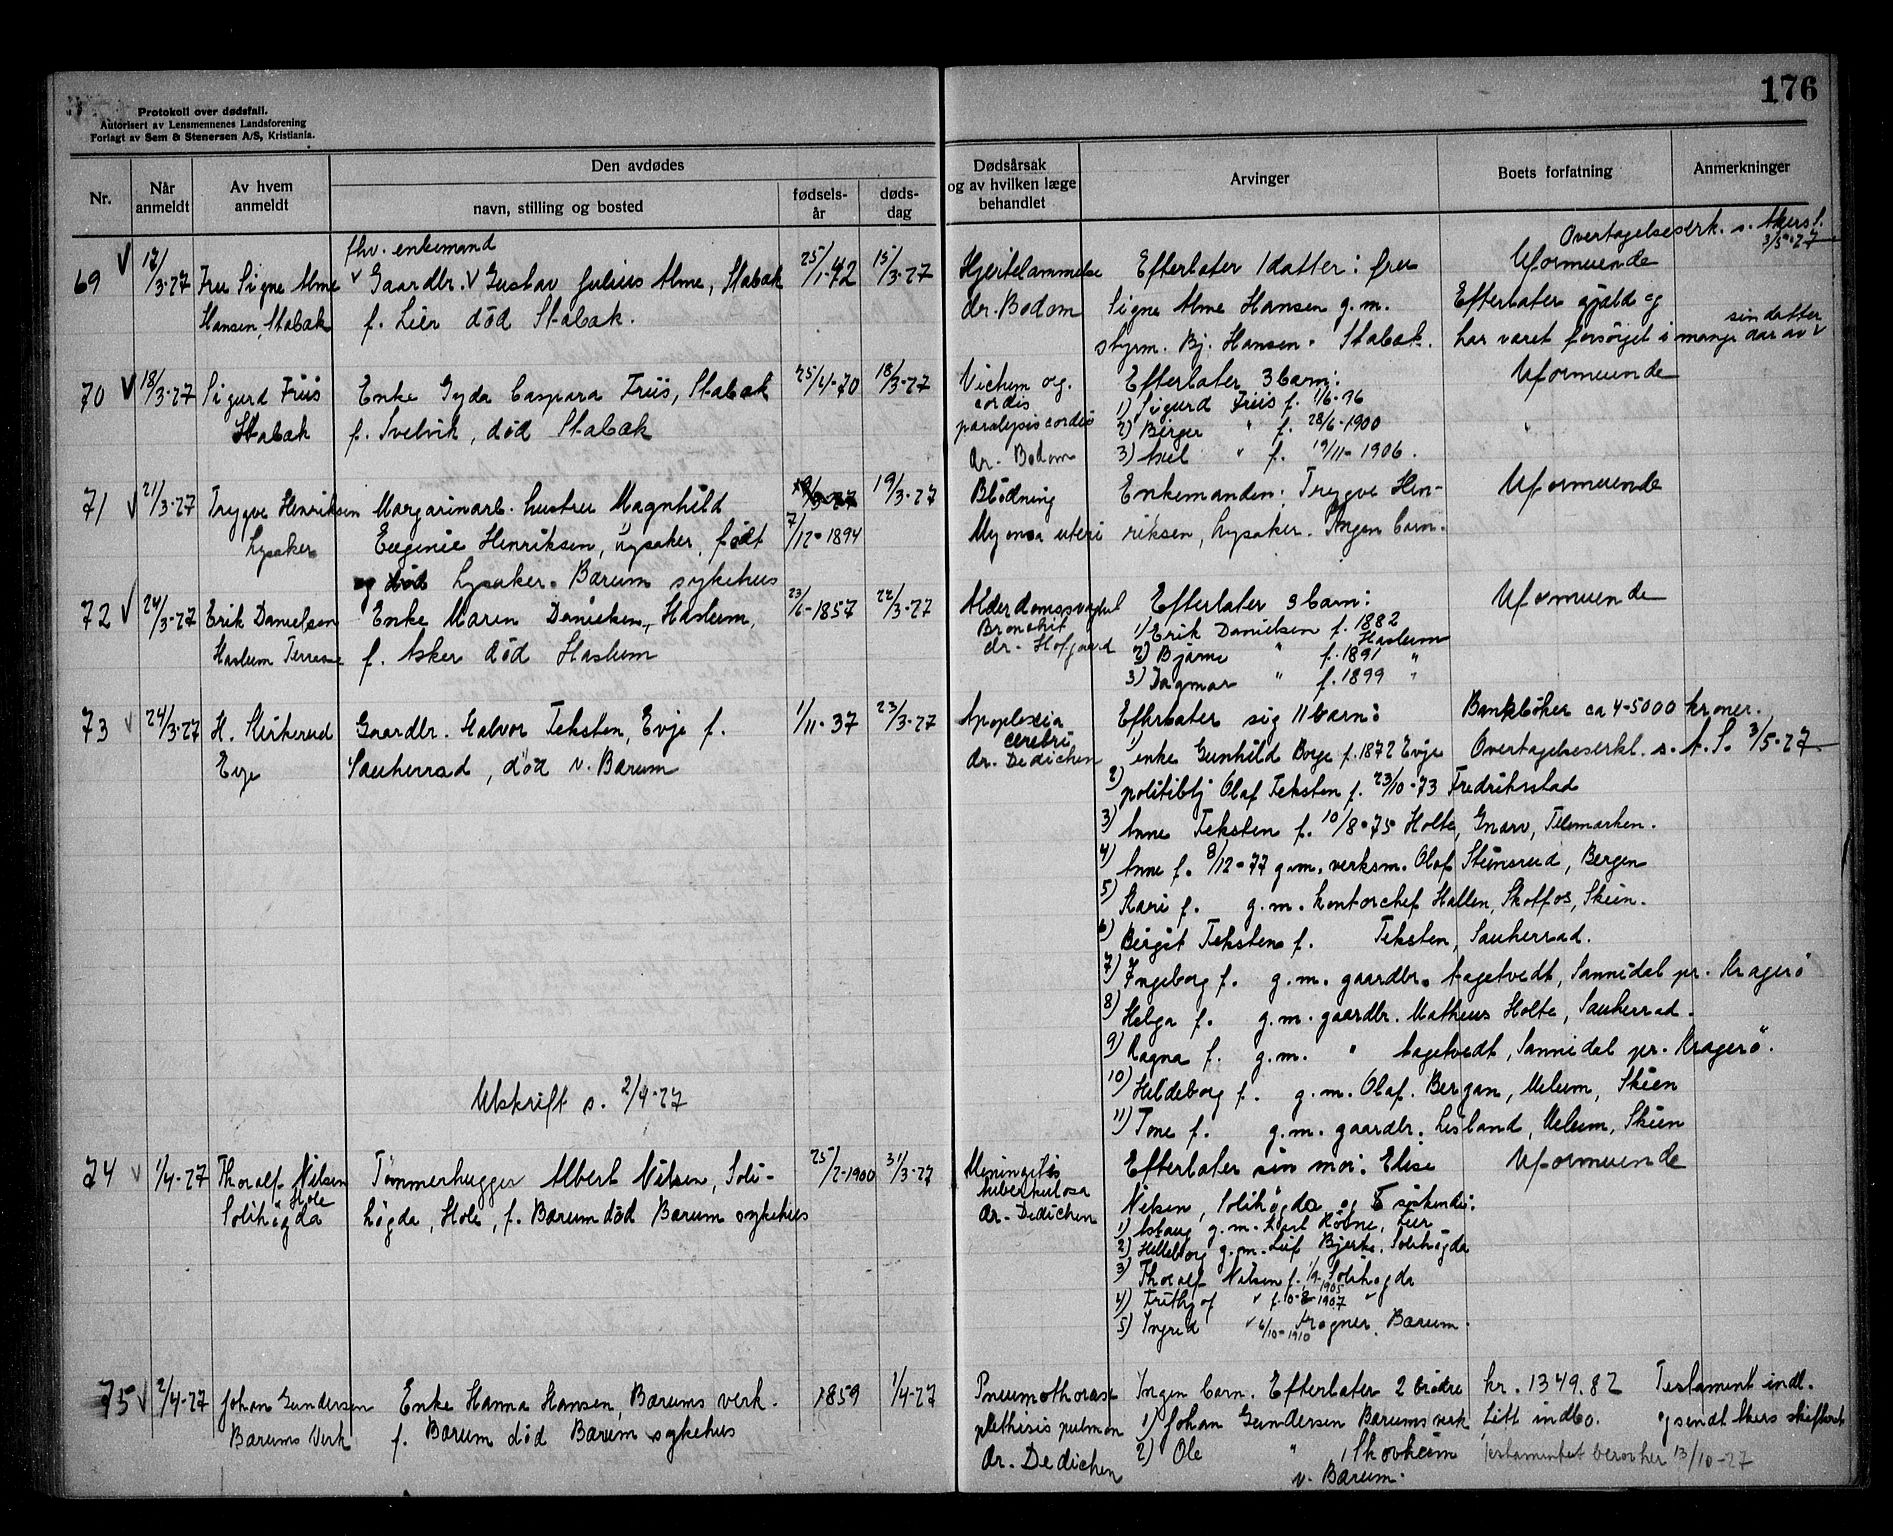 176
Protokoll over dødsfall.
Autorisert av Lensmennenes Landsforening
Forlagt av Sem & Stenersen A/S, Kristiania.
Nr.
Når anmeldt
Av hvem anmeldt
Den avdødes
navn, stilling og bosted
fødsels-år
døds-dag
Dødsårsak og av hvilken læge behandlet
Arvinger
Boets forfatning
Anmerkninger
69 17/3-27
Fru Signe Alme
Hansen, Stabæk
fhv. enkemand
Gaardbr. Gustav Julius Alme, Stabæk
f. Lier død Stabæk.
25/1-42 15/3-27
Hjertelammelse
dr. Bodom
Efterlater 1 datter: fru
Signe Alme Hansen g.m.
styrm. Bj. Hansen. Stabæk.
Overtagelseserk. s. Akers S. 3/5-27
Uformuende
Efterlater gjæld og
har været forsørget i mange aar av sin datter
70 18/3-27
Sigurd Friis
Stabæk
Enke Gyda Caspara Friis, Stabæk
f. Svelvik, død Stabæk
25/4-70 18/3-27
Vichem og.
cordis
paralysis cordis
dr. Bodom
Efterlater 3 barn:
1) Sigurd Friis f. 1/6-96
2) Birger " f. 28/6-1900
3) Axel " f. 19/11-1906.
Uformuende
71 21/3-27
Trygve Henriksen
Lysaker
Margarinarb. hustru Magnhild
Eugenie Henriksen, Lysaker, født
og død Lysaker. Bærum sykehus
7/12-1894 19/3-27
Blödning
Myoma uteri
Enkemanden: Trygve Hen-
riksen, Lysaker. Ingen barn.
Uformuende
72 24/3-27
Erik Danielsen
Haslum Terrasse
Enke Maren Danielsen, Haslum,
f. Asker død Haslum
23/6-1857 22/3-27
Alderdomssvakhet
Bronchit
dr. Hofgaard
Efterlater 3 barn:
1) Erik Danielsen f. 1882 Haslum
2) Bjarne " f. 1891 "
3) Dagmar " f. 1899 "
Uformuende
73 24/3-27
H. Kirkerud
Evje
Gaardbr. Halvor Teksten, Evje f.
Sauherrad, død v. Bærum
1/11-37 23/3-27
Apoplexia
cerebri
dr. Dedichen
Efterlater sig 11 barn:
1) enke Gunhild Borge f. 1872 Evje
2) politibtj Olaf Teksten f. 23/10-73 Fredrikstad
3) Anne Teksten f. 10/8-75 Holte, Gvarv, Telemarken.
4) Anne f. 8/12-77 g.m. verksm. Olaf Steinsrud, Bergen
5) Kari f. g.m. kontorchef Hallen, Skotfos, Skien.
6) Birgit Teksten f. Teksten, Sauherrad.
7) Ingeborg f. g.m. gaardbr. Aagetvedt, Sannidal pr. Kragerö
8) Helga f. g.m. gaardbr. Matheus Holte, Sauherrad.
9) Ragna f. g.m. " Aagetvedt, Sannidal pr. Kragerö.
10) Hildeborg f. g.m. Olaf Bergan, Melum, Skien
11) Tone f. g.m. gaardbr. Lisland, Melum, Skien
Bankböker ca 4-5000 kroner.
Overtagelseserkl. s. A.S. 3/5-27
Utskrift s. 2/4-27
74 1/4-27
Thoralf Nilsen
Hole
Solihögda
Tömmerhugger Albert Nilsen, Soli-
högda, Hole, f. Bærum död Bærum sykehus
25/2-1900 31/3-27
Meningitis
tuberkulosa
dr. Dedichen
Efterlater sin mor: Elise
Nilsen, Solihögda og 5 söskende:
1) Aslaug g.m. Karl Hovne, Lier
2) Helleborg g.m. Leif Bjerke, Solihögda
3) Thoralf Nilsen f. 1/9-1905 Solihögda
4) Frithjof " f. 10-8-1907 "
5) Ingrid " 6/10-1910 Fragner Bærum.
Uformuende
75 2/4-27
Johan Gundersen
Bærums Verk
Enke Hanna Hansen, Bærums verk.
f. Bærum död Bærum sykehus
1859 1/4-27
Pneumothorax
phthisis pulmon
dr. Dedichen
Ingen barn. Efterlater 2 brödre
1) Johan Gundersen Bærums verk
2) Ole " , Skovheim
v. Bærum.
kr. 1349.82
Litt indbo.
Testament indl.
og sendt Akers skifteret
testamentet beror her 13/10-27